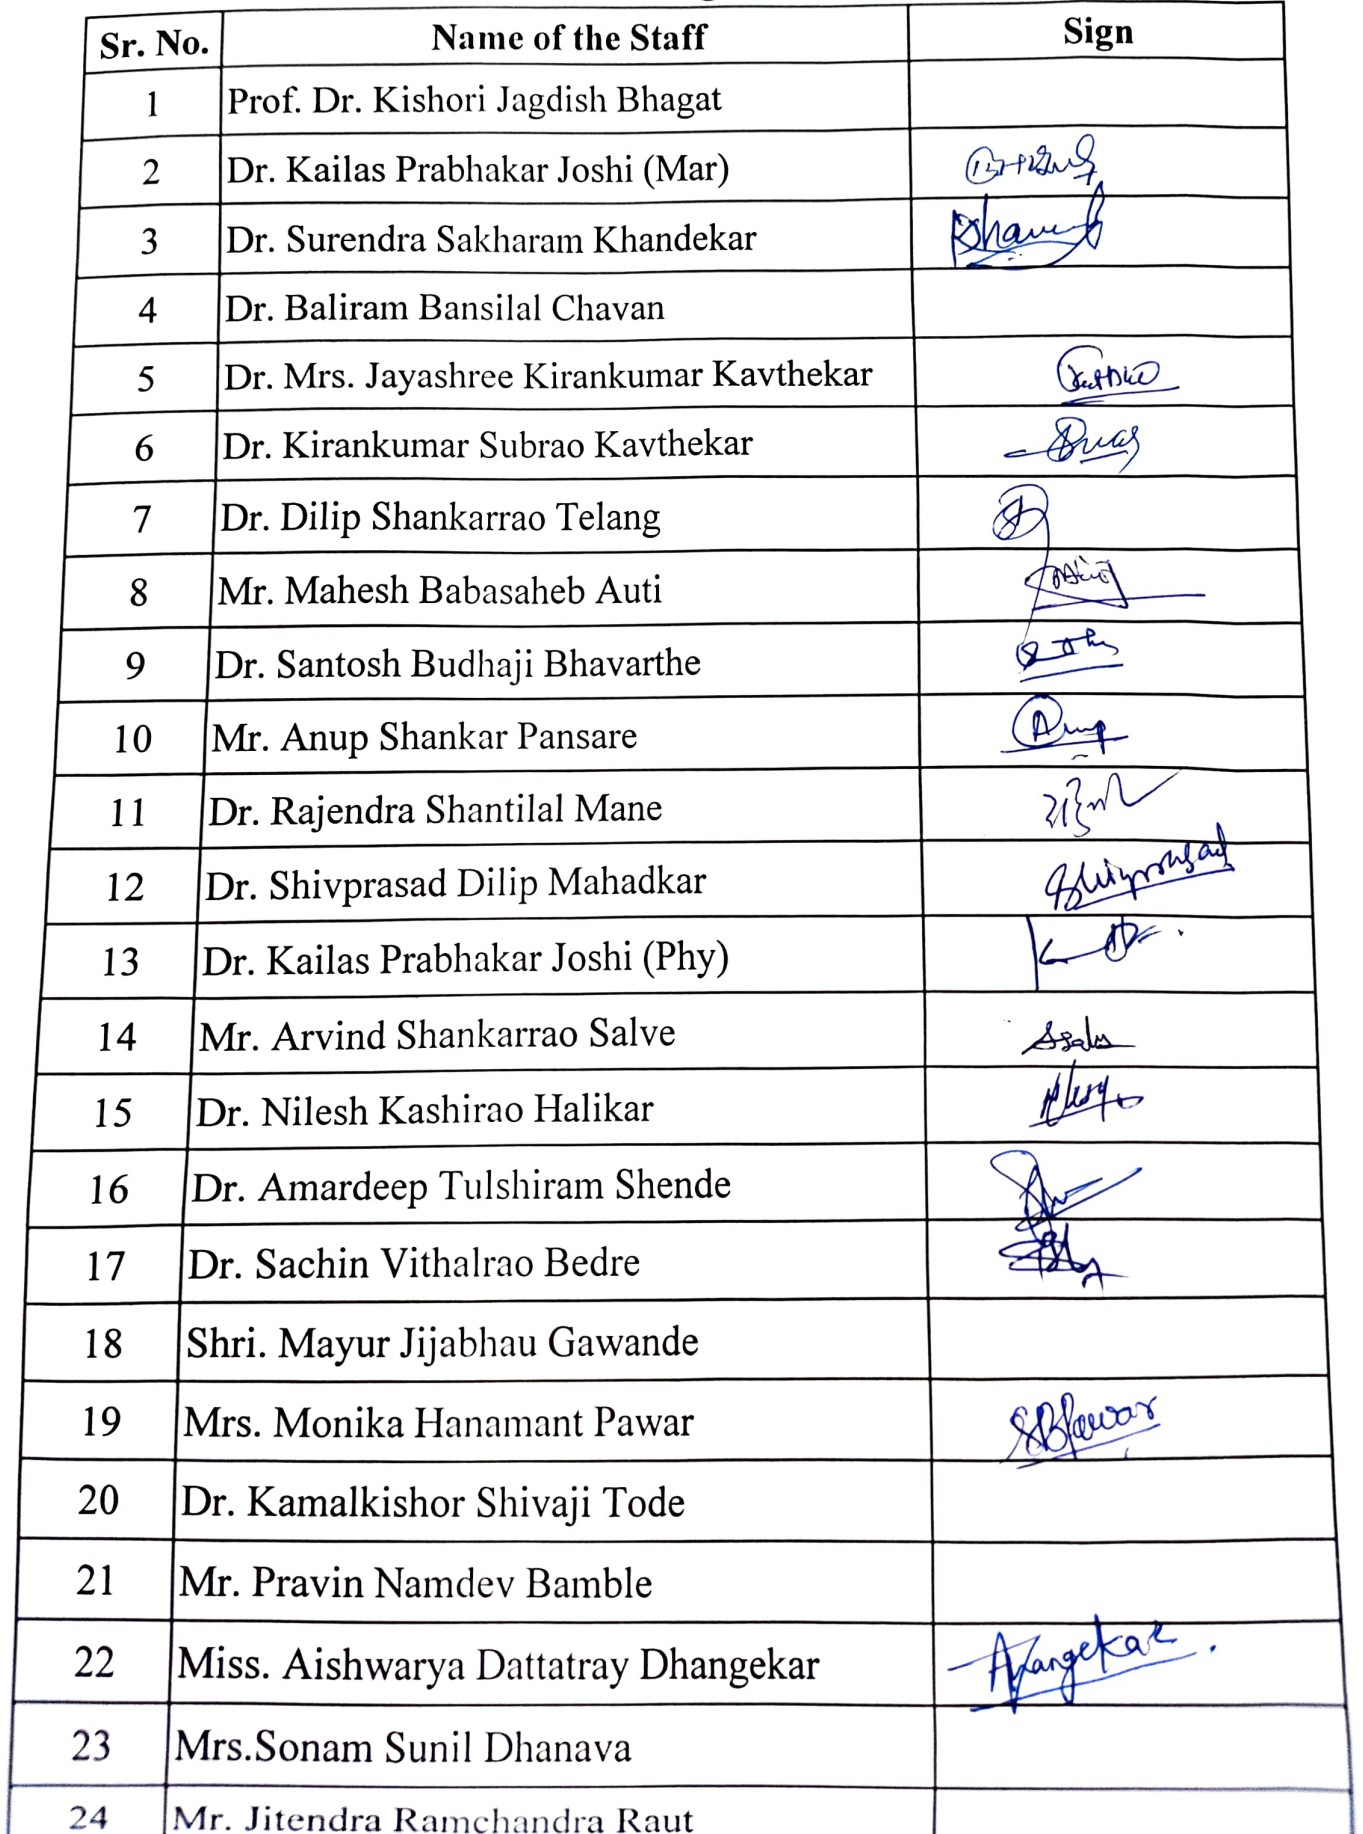 Sr. No. Name of the Staff Sign
1 Prof. Dr. Kishori Jagdish Bhagat
2 Dr. Kailas Prabhakar Joshi (Mar)
3 Dr. Surendra Sakharam Khandekar
4 Dr. Baliram Bansilal Chavan
5 Dr. Mrs. Jayashree Kirankumar Kavthekar
6 Dr. Kirankumar Subrao Kavthekar
7 Dr. Dilip Shankarrao Telang
8 Mr. Mahesh Babasaheb Auti
9 Dr. Santosh Budhaji Bhavarthe
10 Mr. Anup Shankar Pansare Anup
11 Dr. Rajendra Shantilal Mane
12 Dr. Shivprasad Dilip Mahadkar Shivprasad
13 Dr. Kailas Prabhakar Joshi (Phy)
14 Mr. Arvind Shankarrao Salve
15 Dr. Nilesh Kashirao Halikar
16 Dr. Amardeep Tulshiram Shende
17 Dr. Sachin Vithalrao Bedre
18 Shri. Mayur Jijabhau Gawande
19 Mrs. Monika Hanamant Pawar
20 Dr. Kamalkishor Shivaji Tode
21 Mr. Pravin Namdev Bamble
22 Miss. Aishwarya Dattatray Dhangekar
23 Mrs.Sonam Sunil Dhanava
24 Mr. Jitendra Ramchandra Raut